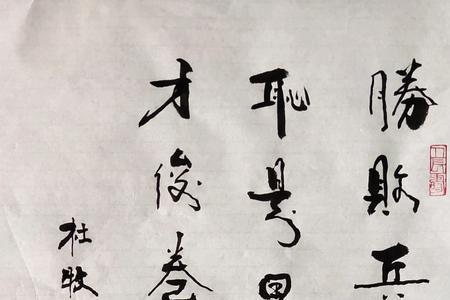 勝敗兵
恥是男
才俊卷
杜牧